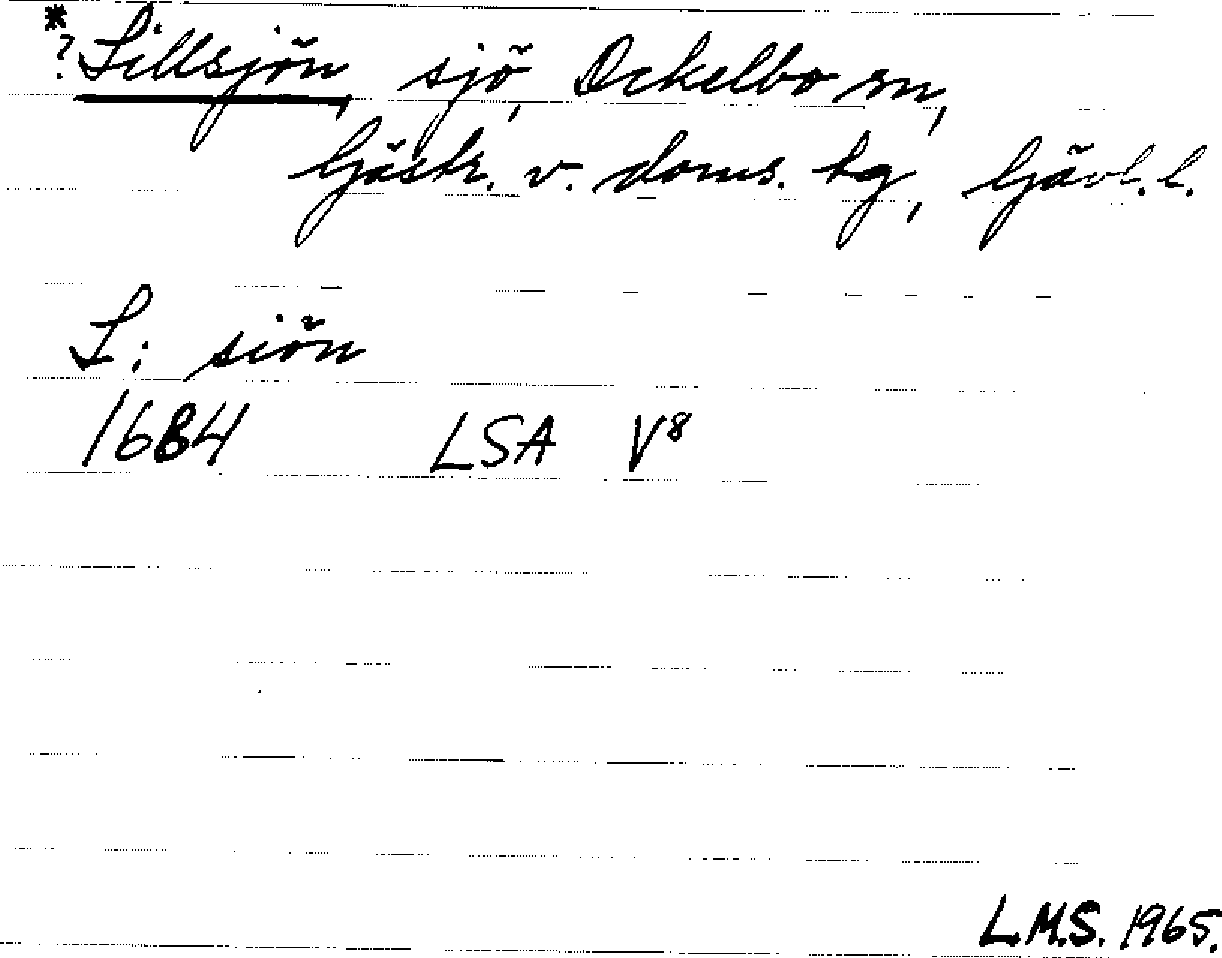 *
? Lillsjön, sjö, Ockelbo sn,
Gästr. v. doms. tg, Gävl. l.
L: siön
1684 LSA V8
L.M.S. 1965.